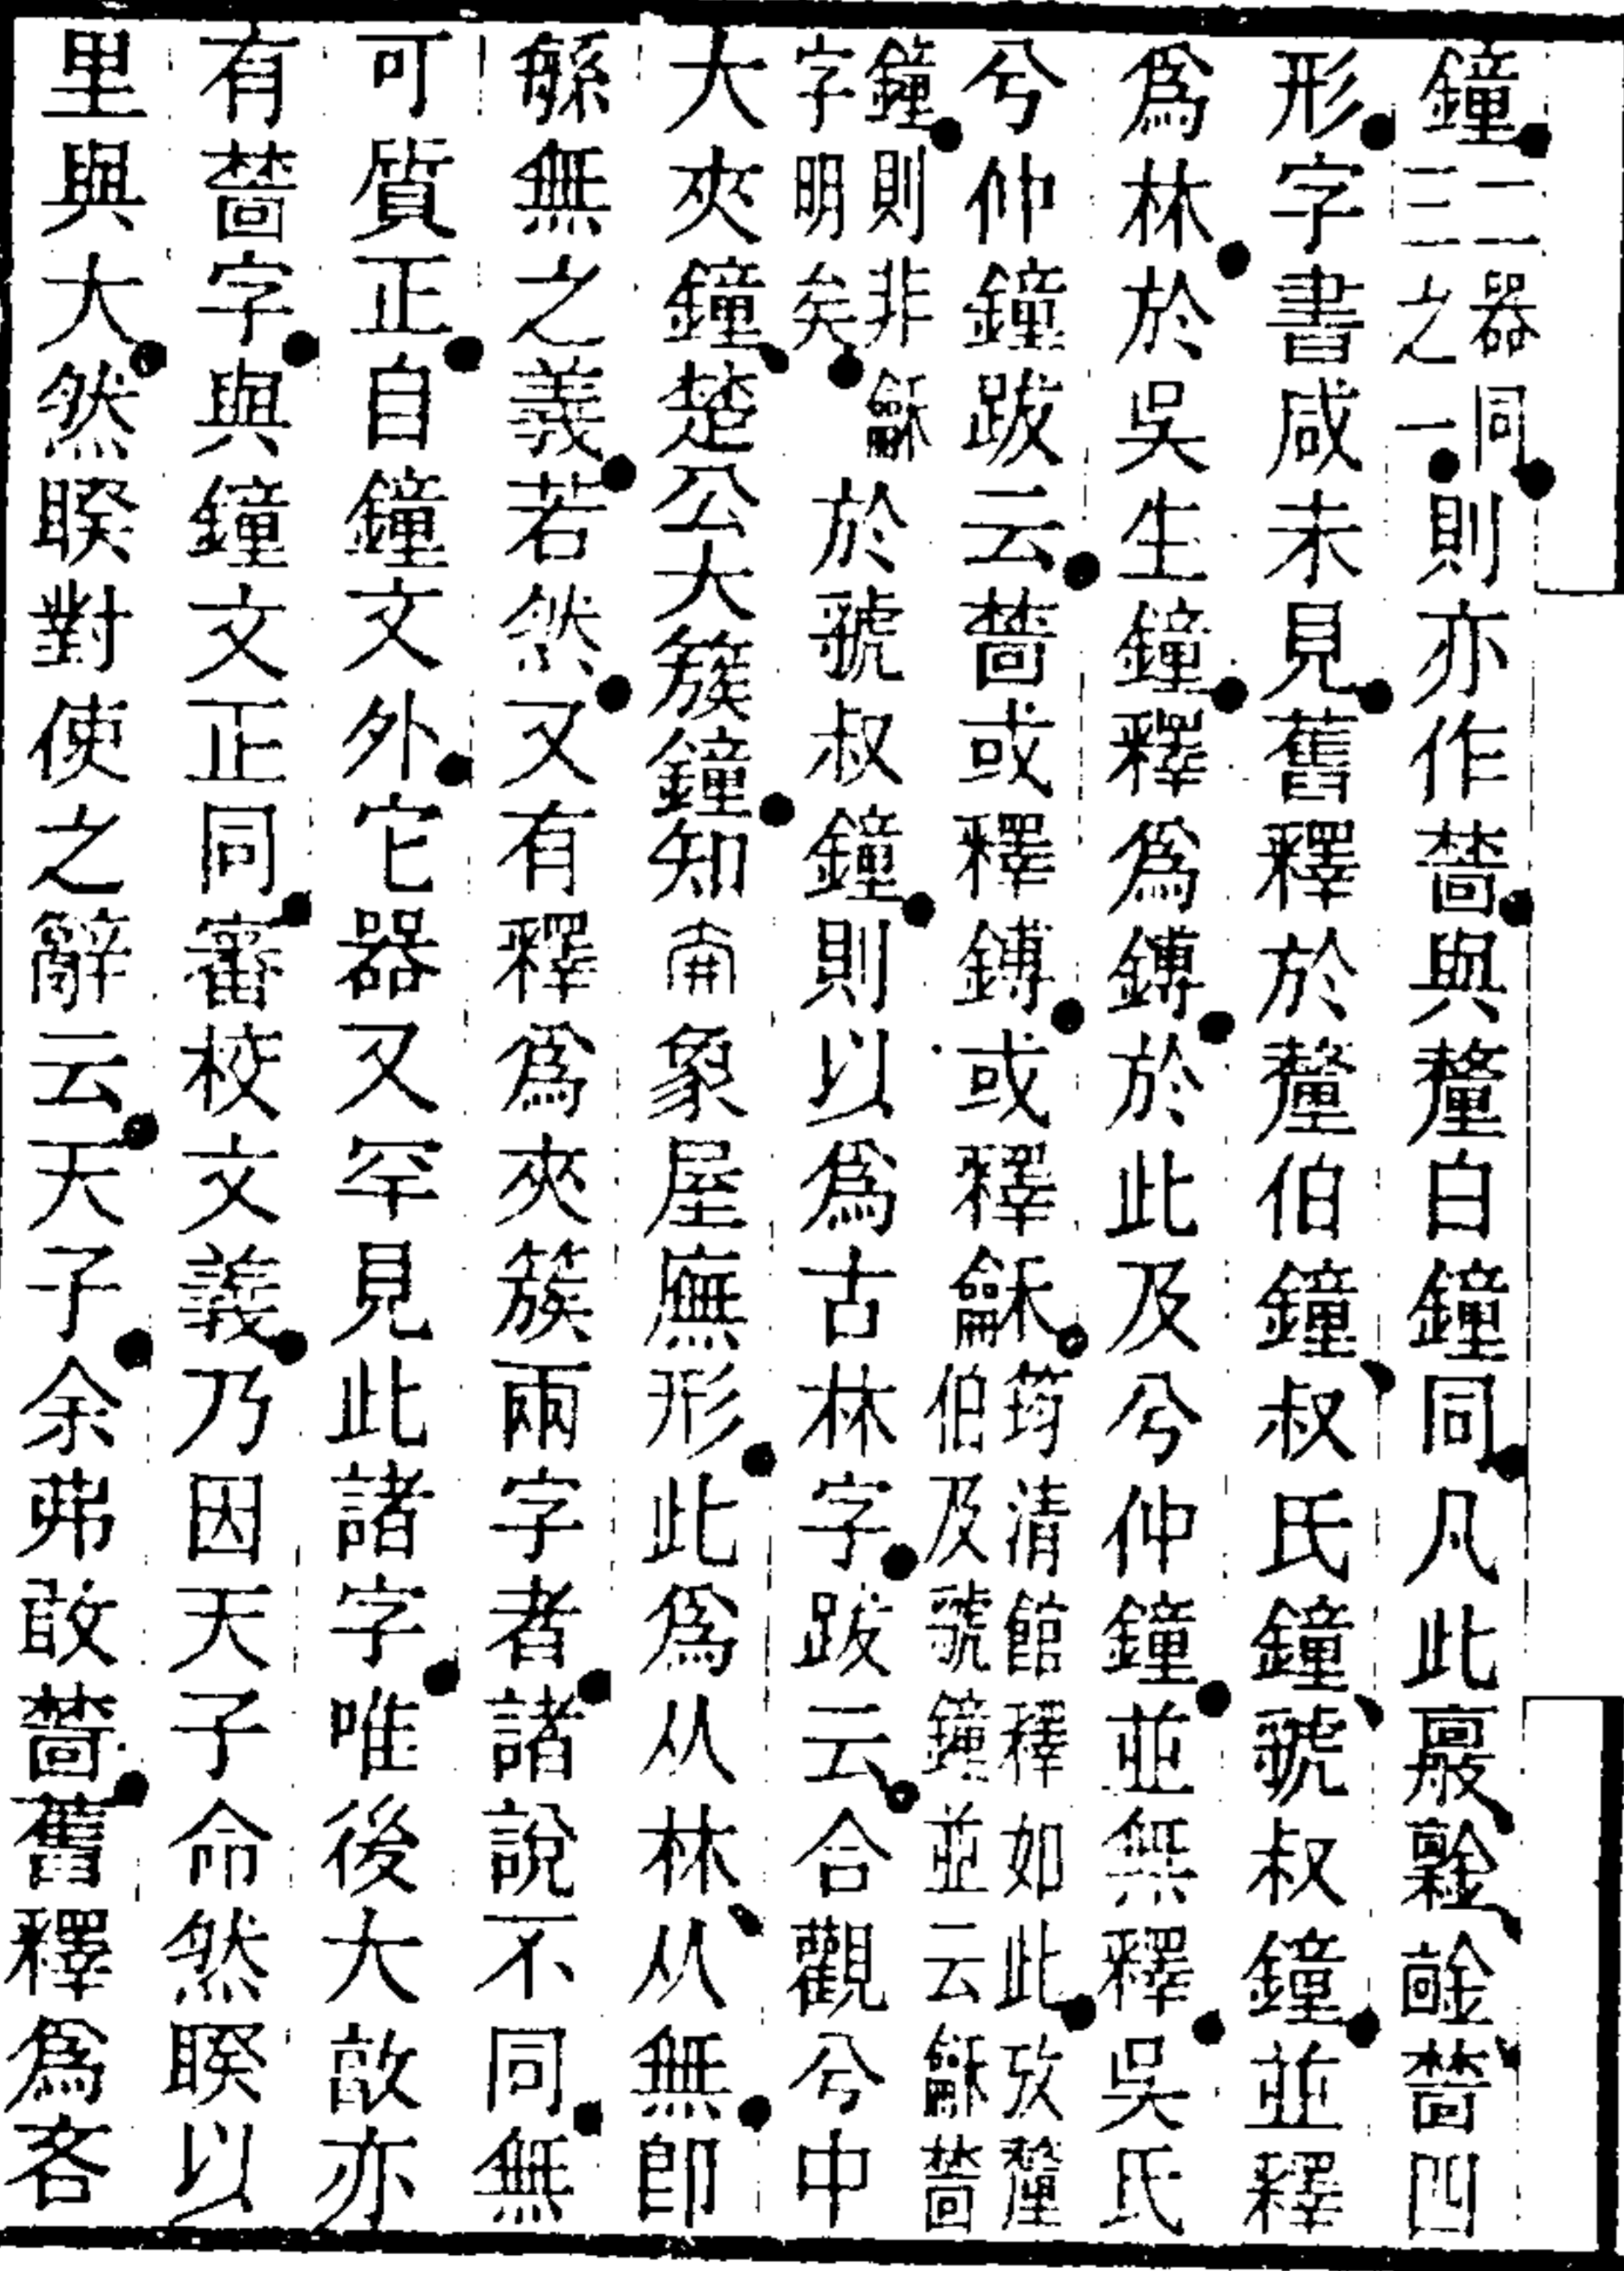 鐘二器同三之一則亦作䔩與釐白鐘同凡此䔩四
形字書咸未見舊釋於釐伯鐘叔氏鐘虢叔鐘並釋
爲林於吳生鐘釋爲鎛於此及兮仲鐘並無釋吳氏
兮仲鐘跋云䔩或釋鎛或釋龢筠清館釋如此攷釐伯及虢鐘並云龢䔩
鐘則非龢字明矣於虢叔鐘則以爲古林字跋云合觀兮中
大夾鐘楚公大簇鐘知象屋廡形此爲从林从無即
緐無之義若然又有釋爲夾簇兩字者諸說不同無
可質正自鐘文外它器又罕見此諸字唯後大敢亦
有䔩字與鐘文正同審校文義乃因天子命然睽以
里與大然睽對使之辭云天子余弗敢䔩舊釋爲吝